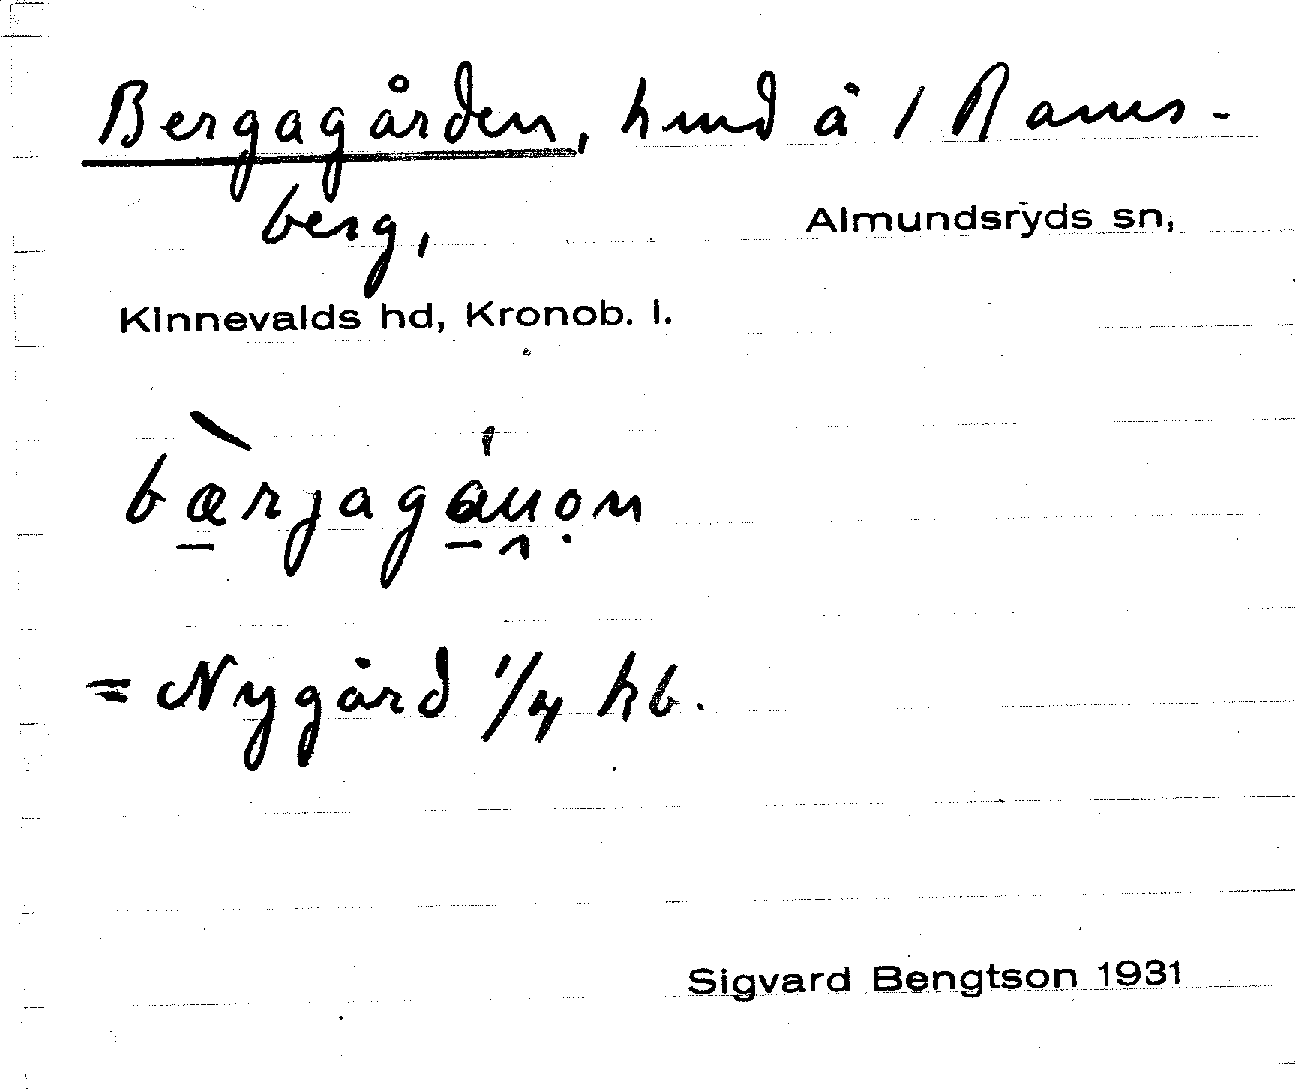 Bergagården, hmd å 1 Rams-
berg,
Almundsryds sn,
Kinnevalds hd, Kronob. l.
= Nygård 1/4 hb.
Sigvard Bengtson 1931